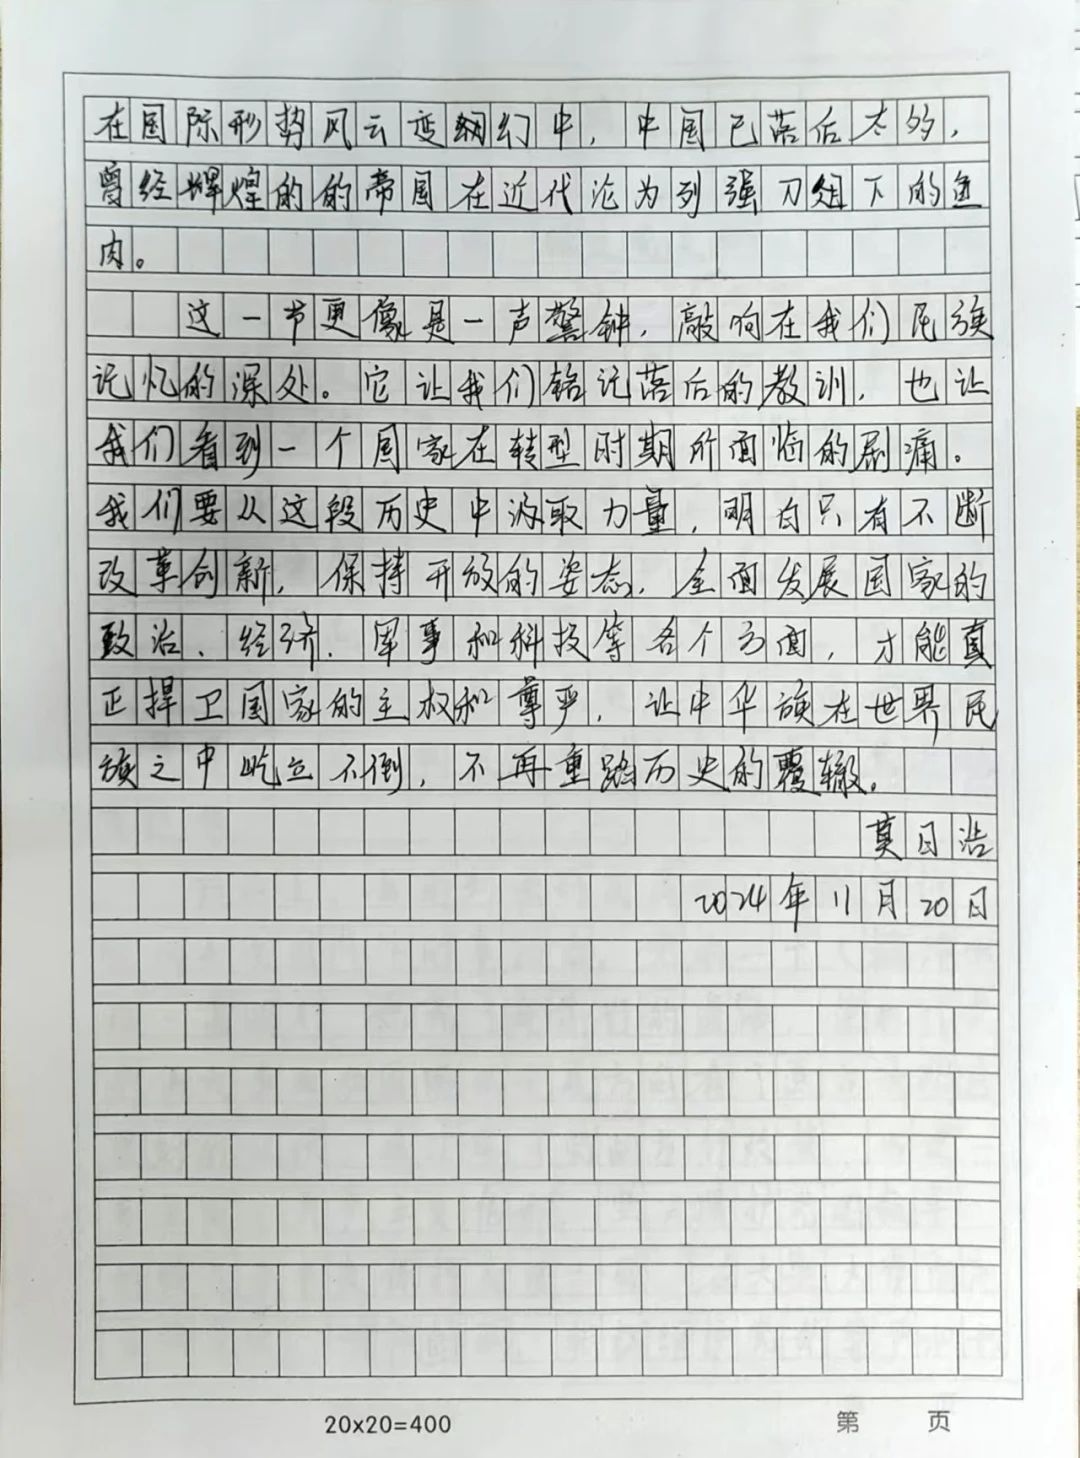 在国际形势风云变幻中，中国已落后太多，
曾经辉煌的的帝国在近代沦为列强刀俎下的鱼
肉。
这一节更像是一声警钟，敲响在我们民族
记忆的深处。它让我们铭记落后的教训，也让
我们看到一个国家在转型时期所面临的剧痛。
我们要从这段历史中汲取力量，明白只有不断
改革创新，保持开放的姿态，全面发展国家的
政治、经济、军事和科技等各个方面，才能真
正捍卫国家的主权和尊严，让中华族在世界民
族之中屹立不倒，不再重蹈历史的覆辙。
莫日浩
2024年11月20日
20x20=400
第 页